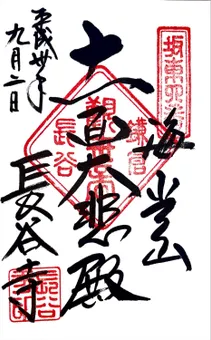 坂東四番
海光山
鎌倉
十一面大悲殿
長谷
長谷寺
平成卅年
九月二日